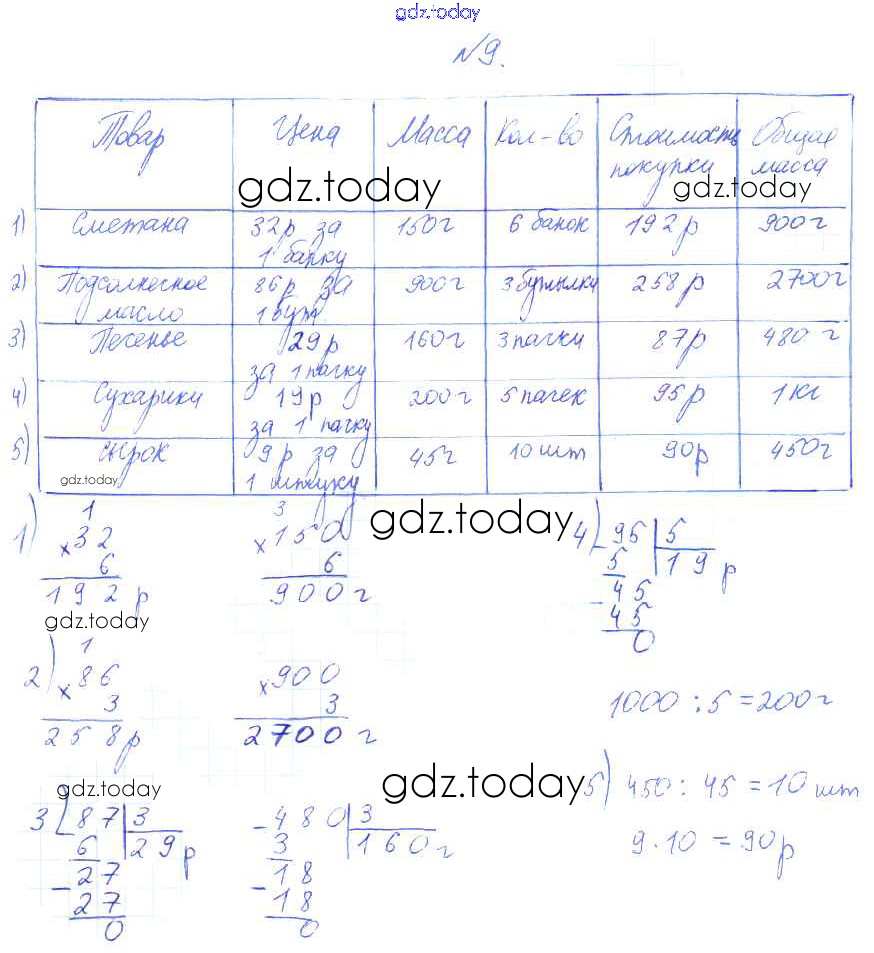 gdz.today
№9.
Товар Цена Масса Кол-во Стоимость Общая
покупки масса
gdz.today gdz.today
1) Сметана 32р за 150г 6 банок 192р 900г
1 банку
2) Подсолнечное 86р за 900г 3 бутылки 258р 2700г
масло 1 бут
3) Печенье 29р 160г 3 пачки 87р 480 г
за 1 пачку
4) Сухарики 19р 200г 5 пачек 95р 1 кг
за 1 пачку
5) сырок 9р за 45г 10 шт 90р 450г
gdz.today 1 штуку
1) 1 3 gdz.today
×32 ×150 4) - 95 5
6 6 5 19 р
192 р 900 г - 45
gdz.today 45
0
2) 1
×86 ×900
3 3 1000 : 5 = 200г
258р 2700 г
gdz.today gdz.today 5) 450 : 45 = 10 шт
3 87 3 - 480 3
6 29 р 3 160 г 9 · 10 = 90р
- 27 - 18
27 18
0 0